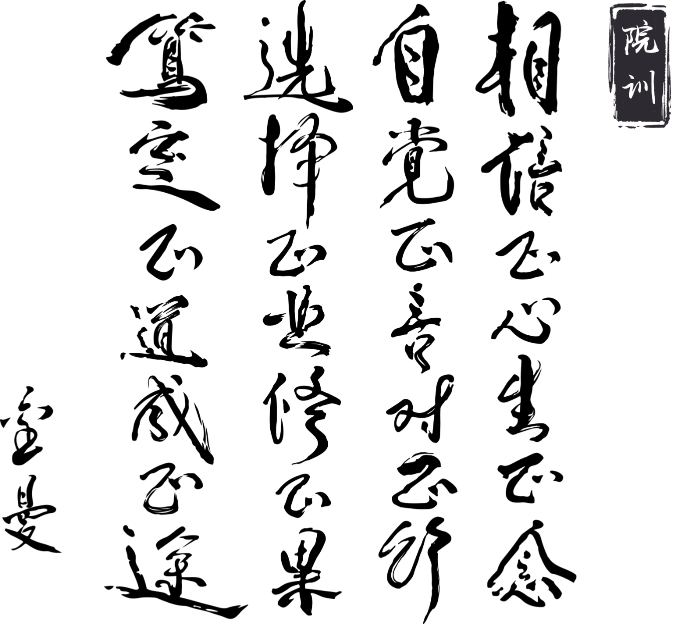 院训
相信正心生正念
自觉正言对正行
选择正业修正果
笃定正道成正途
金曼